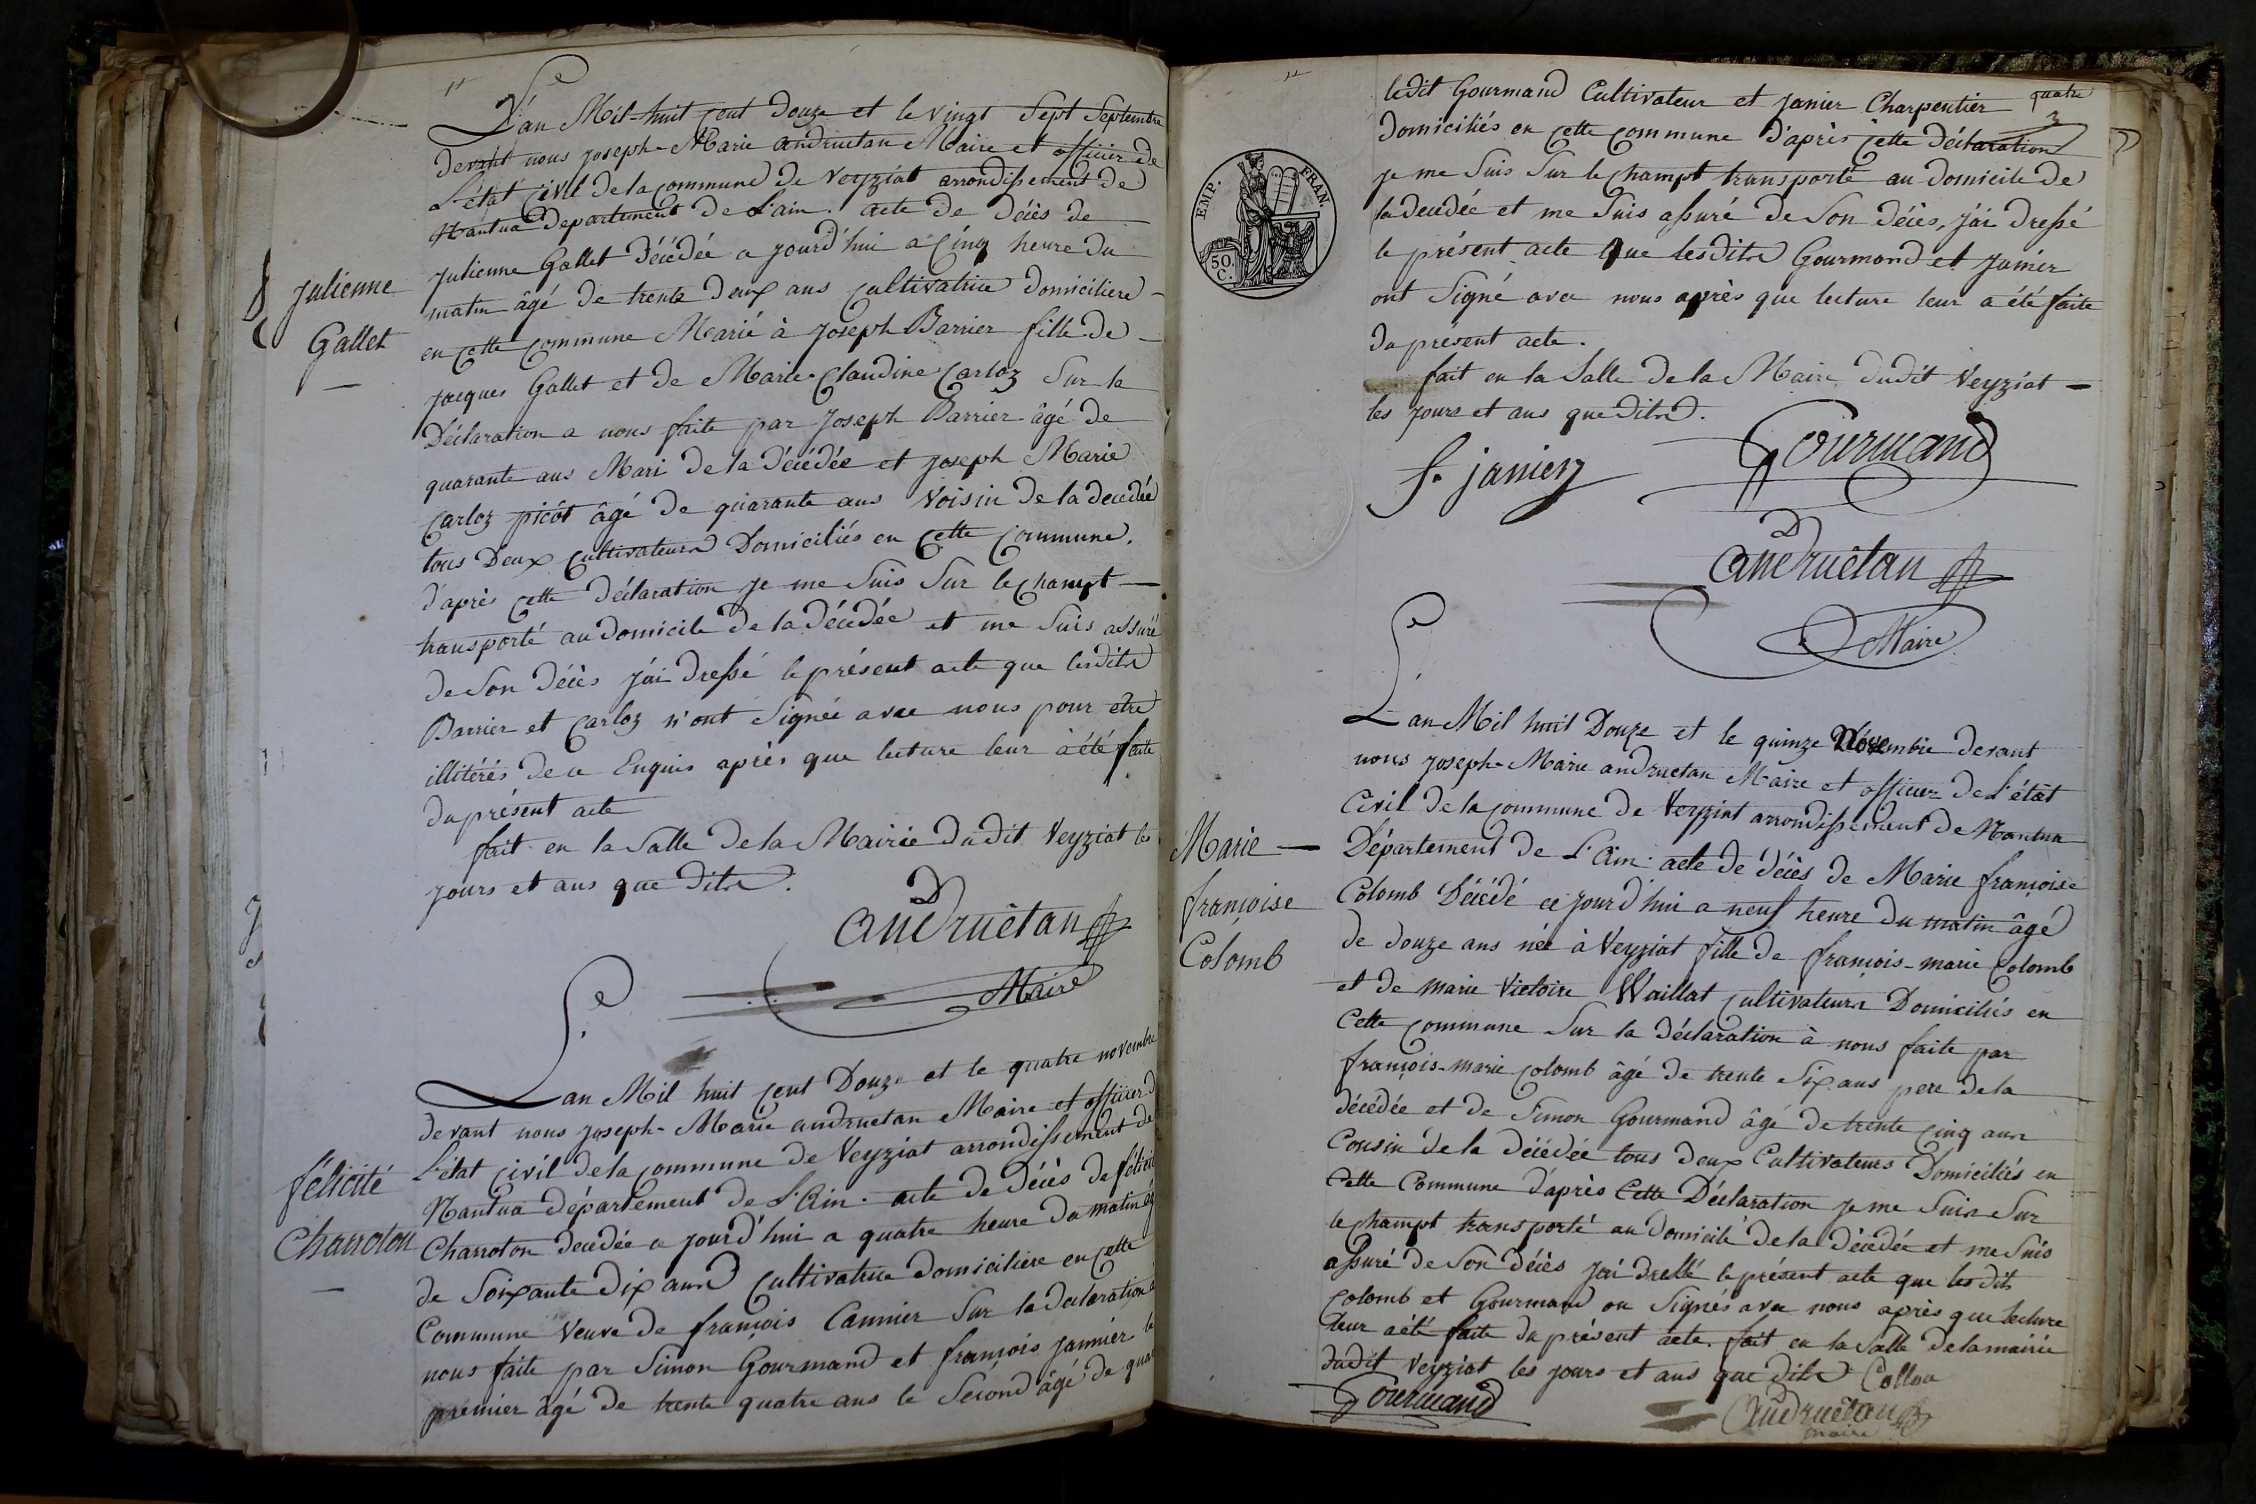 L'an Mil-huit cent Douze et le vingt Sept Septembre
devant nous joseph-Marie andruetan Maire et officier de
L'état Civil de la commune de veyziat arrondissement de
Nantua Departement de L'ain. acte de décès de
julienne Gallet Décédée a jourd'hui a Cinq heure du
matin âgé de trente deux ans Cultivatrice domiciliere
en cette commune Marié à joseph Barrier fille de
jacques Gallet et de Marie-Claudine Carloz Sur la
Déclaration a nous faite par joseph Barrier âgé de
quarante ans Mari de la Décédée et joseph Marie
Carloz picôt âgé de quarante ans Voisin de la decedée
tous Deux Cultivateurs Domiciliés en cette commune.
d'après cette déclaration je me Suis Sur le champt
transporté au domicile de la Décédée et me Suis assuré
de Son décès j'ai dressé le présent acte que lesdits
Barrier et Carloz n'ont Signée avec nous pour etre
illitérés de ce Enquis après que lecture leur à été faite
du présent acte
fait en la Salle de la Mairie dudit Veyziat les
jours et ans que dits.
julienne
Gallet
andruêtan
Maire
L'an Mil huit cent Douze et le quatre novembre
devant nous joseph-Marie andruetan Maire et officier d
L'état civil de la commune de Veyziat arrondissement de
Nantua département de L'Ain. acte de Décès de félicité
Charroton decedée a jourd'hui a quatre heure du matin âg
de Soixante dix ans Cultivatrice domiciliere en cette
Commune Veuve de françois Cannier Sur la declaration à
nous faite par Simon Gourmand et françois jannier le
premier âgé de trente quatre ans le Second âgé de qua
félicité
Charroton
quatre
ledit Gourmand Cultivateur et janier Charpentier
Domiciliés en cette commune d'après cette déclaration
je me Suis Sur le champt transporté au domicile de
la decedée et me Suis assuré de Son décès, j'ai dressé
le présent acte que lesdits Gourmand et janier
ont Signé avec nous après que lecture leur a été faite
du présent acte.
fait en la Salle de la Maire dudit Veyziat
les jours et ans que dits.
EMP. FRAN.
50.
C.
f. janier
Gourmand
andruêtan
Maire
L'an Mil huit Douze et le quinze Novembre devant
nous joseph-Marie andruetan Maire et officier de L'état
Civil de la commune de Veyziat arrondissement de Nantua
Département de L'Ain. acte de décès de Marie françoise
Colomb Décédé ce jourd'hui a neuf heure du matin âgé
de douze ans née à Veyziat fille de françois-marie Colomb
et de marie Victoire Waillat cultivateurs Domiciliés en
Cette commune Sur la déclaration à nous faite par
françois-marie colomb âgé de trente Six ans pere de la
décédée et de Simon Gourmand âgé de trente cinq ans
Cousin de la décédée tous deux Cultivateurs Domiciliés en
Cette Commune d'après Cette Déclaration je me Suis Sur
le champt transporté au domicile de la décedée et me Suis
assuré de Son décès j'ai dressé le présent acte que les dits
Colomb et Gourmand on Signés avec nous après que lecture
leur a été faite du présent acte. fait en la Salle de la mairie
dudit Veyziat les jours et ans que dits
Marie
françoise
Colomb
Gourmand
andruêtan
maire